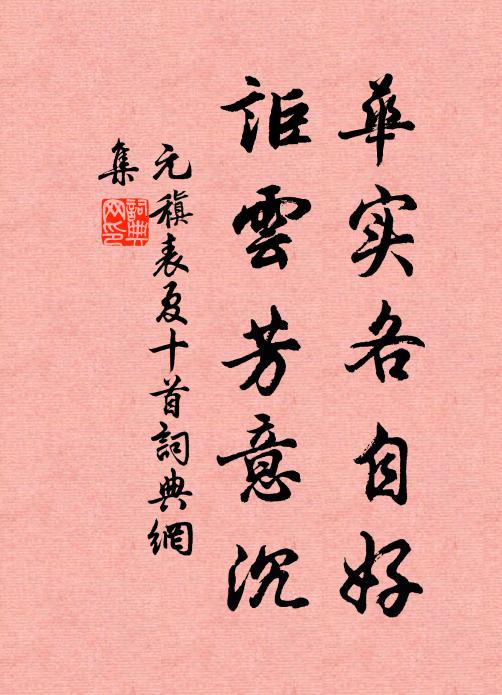 華实各自好
詎雲芳意沉
元稹表夏十首詞典網
集
詞典网印